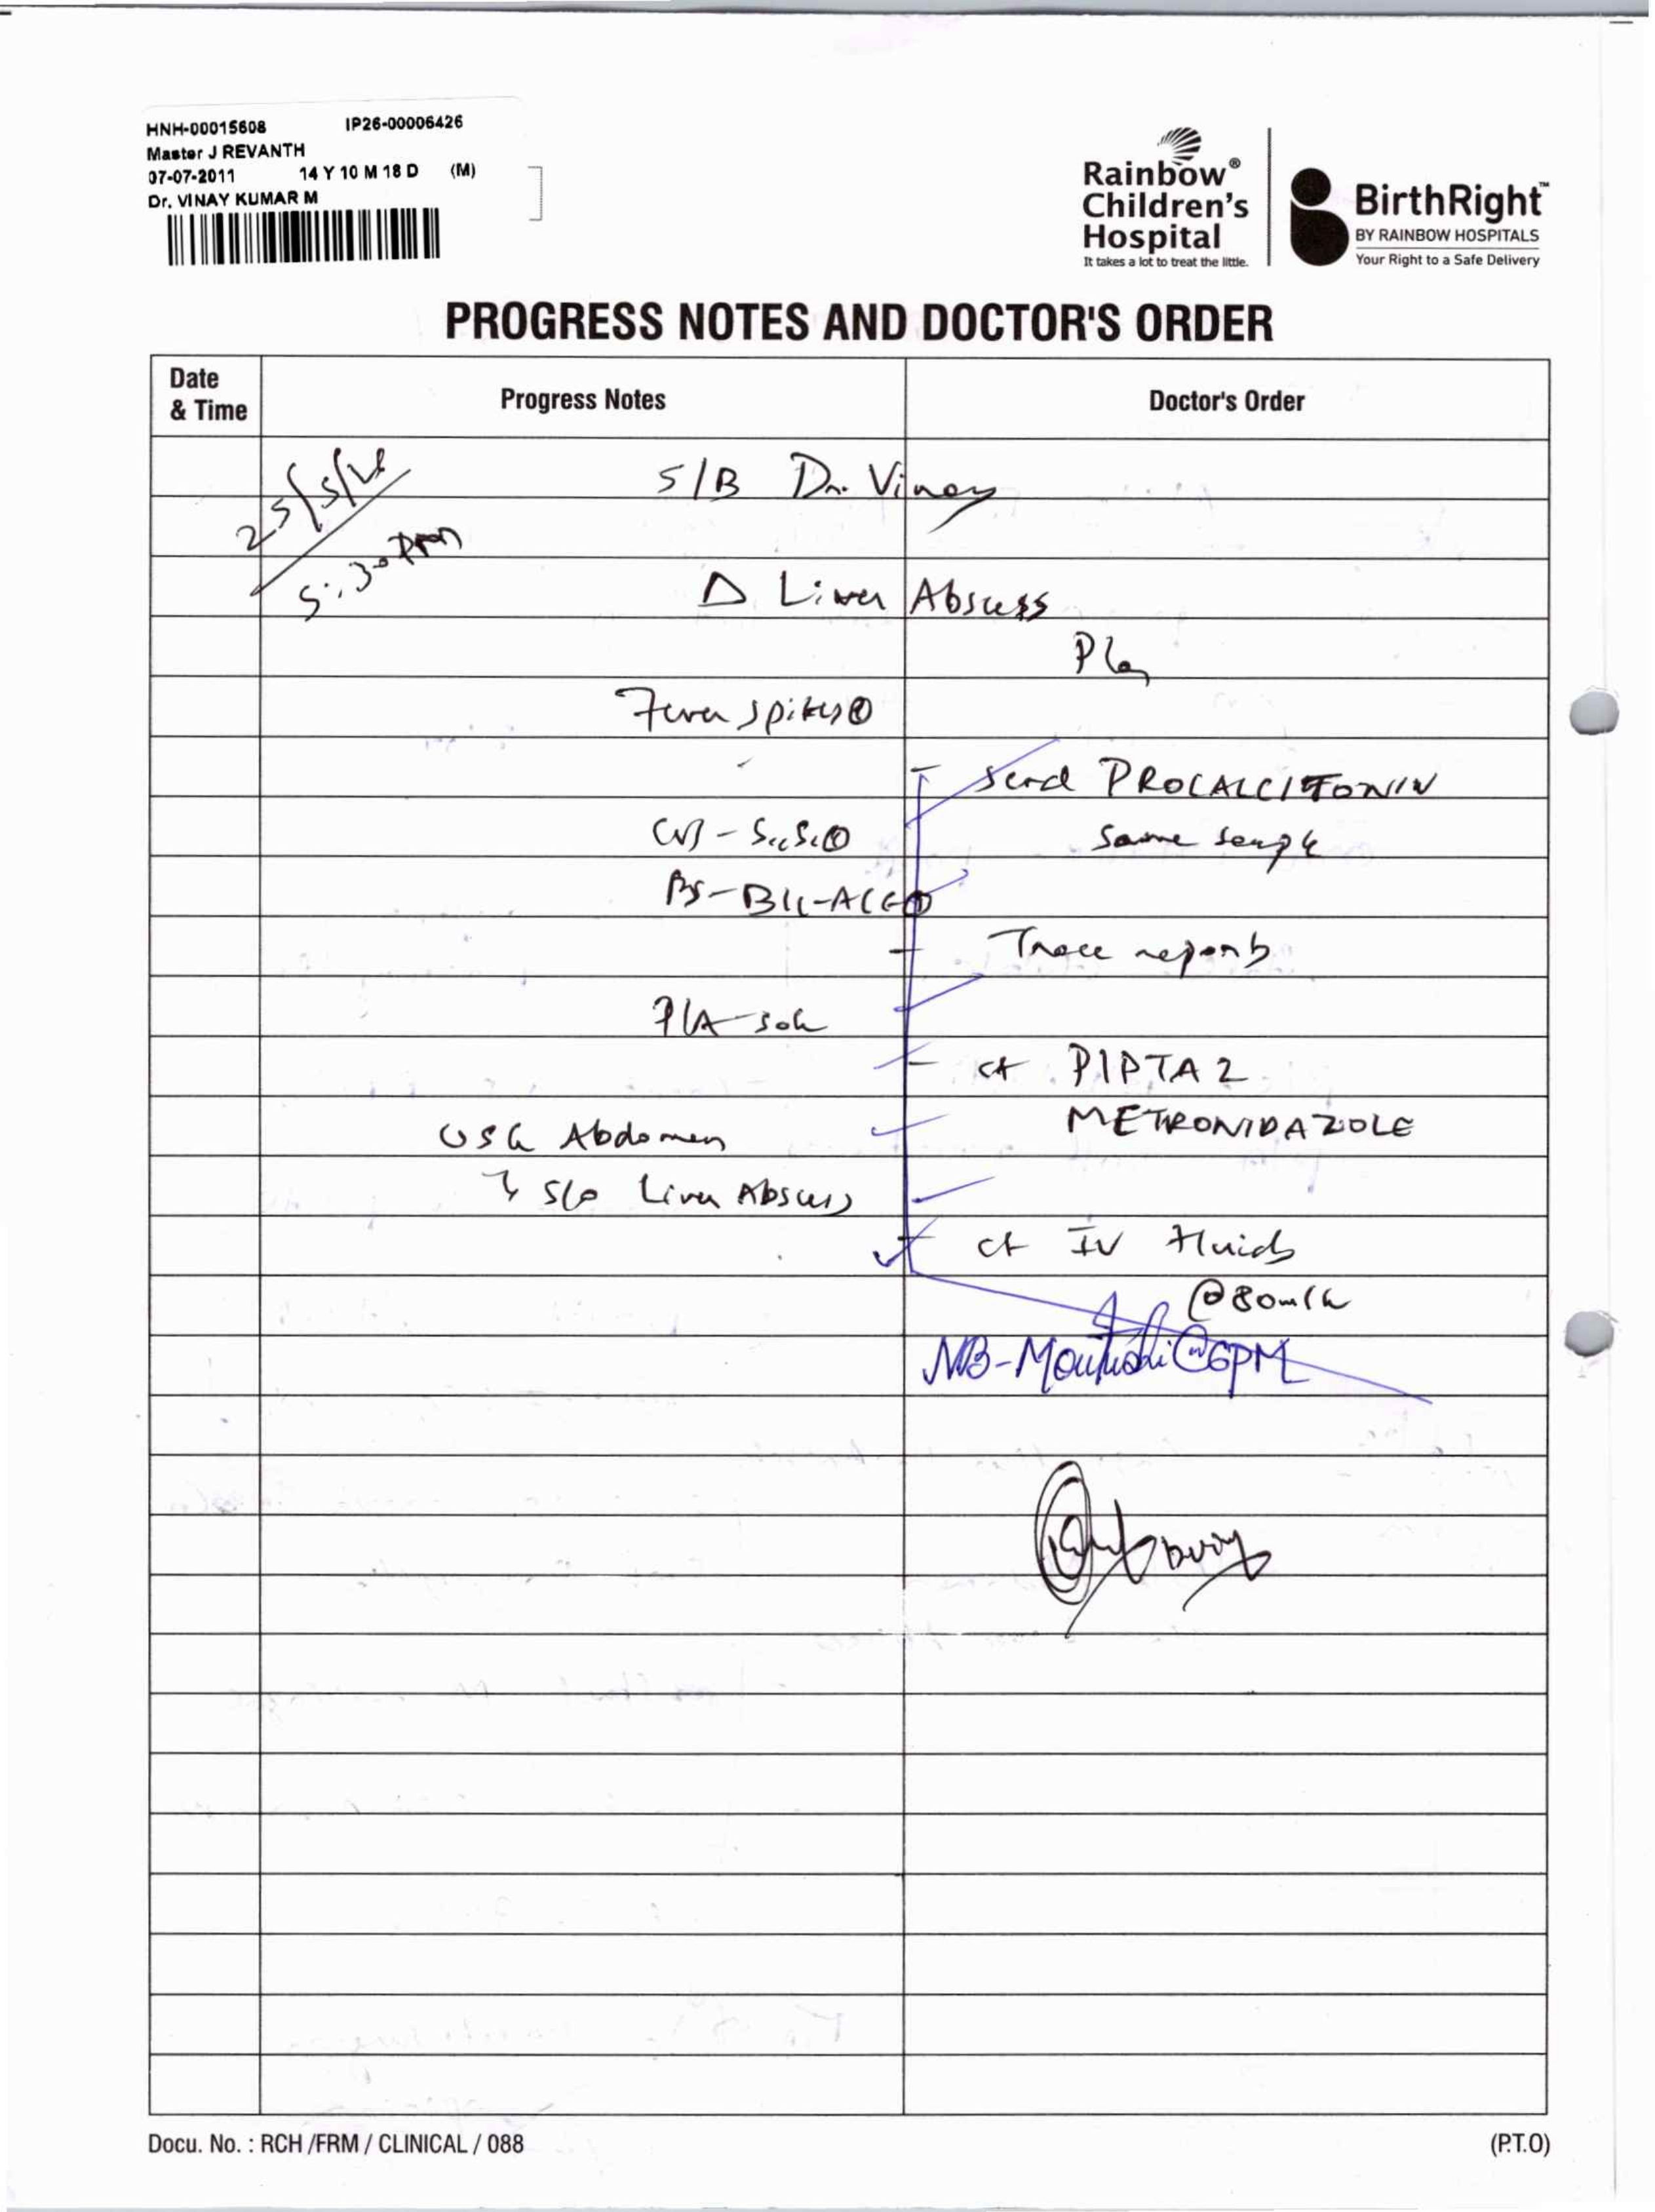 HNH-00015608 IP26-00006426
Master J REVANTH
07-07-2011 14 Y 10 M 18 D (M)
Dr. VINAY KUMAR M
Rainbow®
Children's
Hospital
It takes a lot to treat the little.
BirthRight™
BY RAINBOW HOSPITALS
Your Right to a Safe Delivery
PROGRESS NOTES AND DOCTOR'S ORDER
Date & Time Progress Notes Doctor's Order
25/5/26 S/B Dr. Vinay
5:30 PM
Δ Liver Abscess
Plan
Fever spikes
- send PROCALCITONIN
CVS - S1S2 same sample
RS - B/L - AE
- Trace reports
P/A - soft
- ct PIPTAZ
USG Abdomen METRONIDAZOLE
↳ S/o Liver Abscess
- ct IV fluids
@ 80ml/h
@6PM
Docu. No. : RCH /FRM / CLINICAL / 088 (P.T.O)